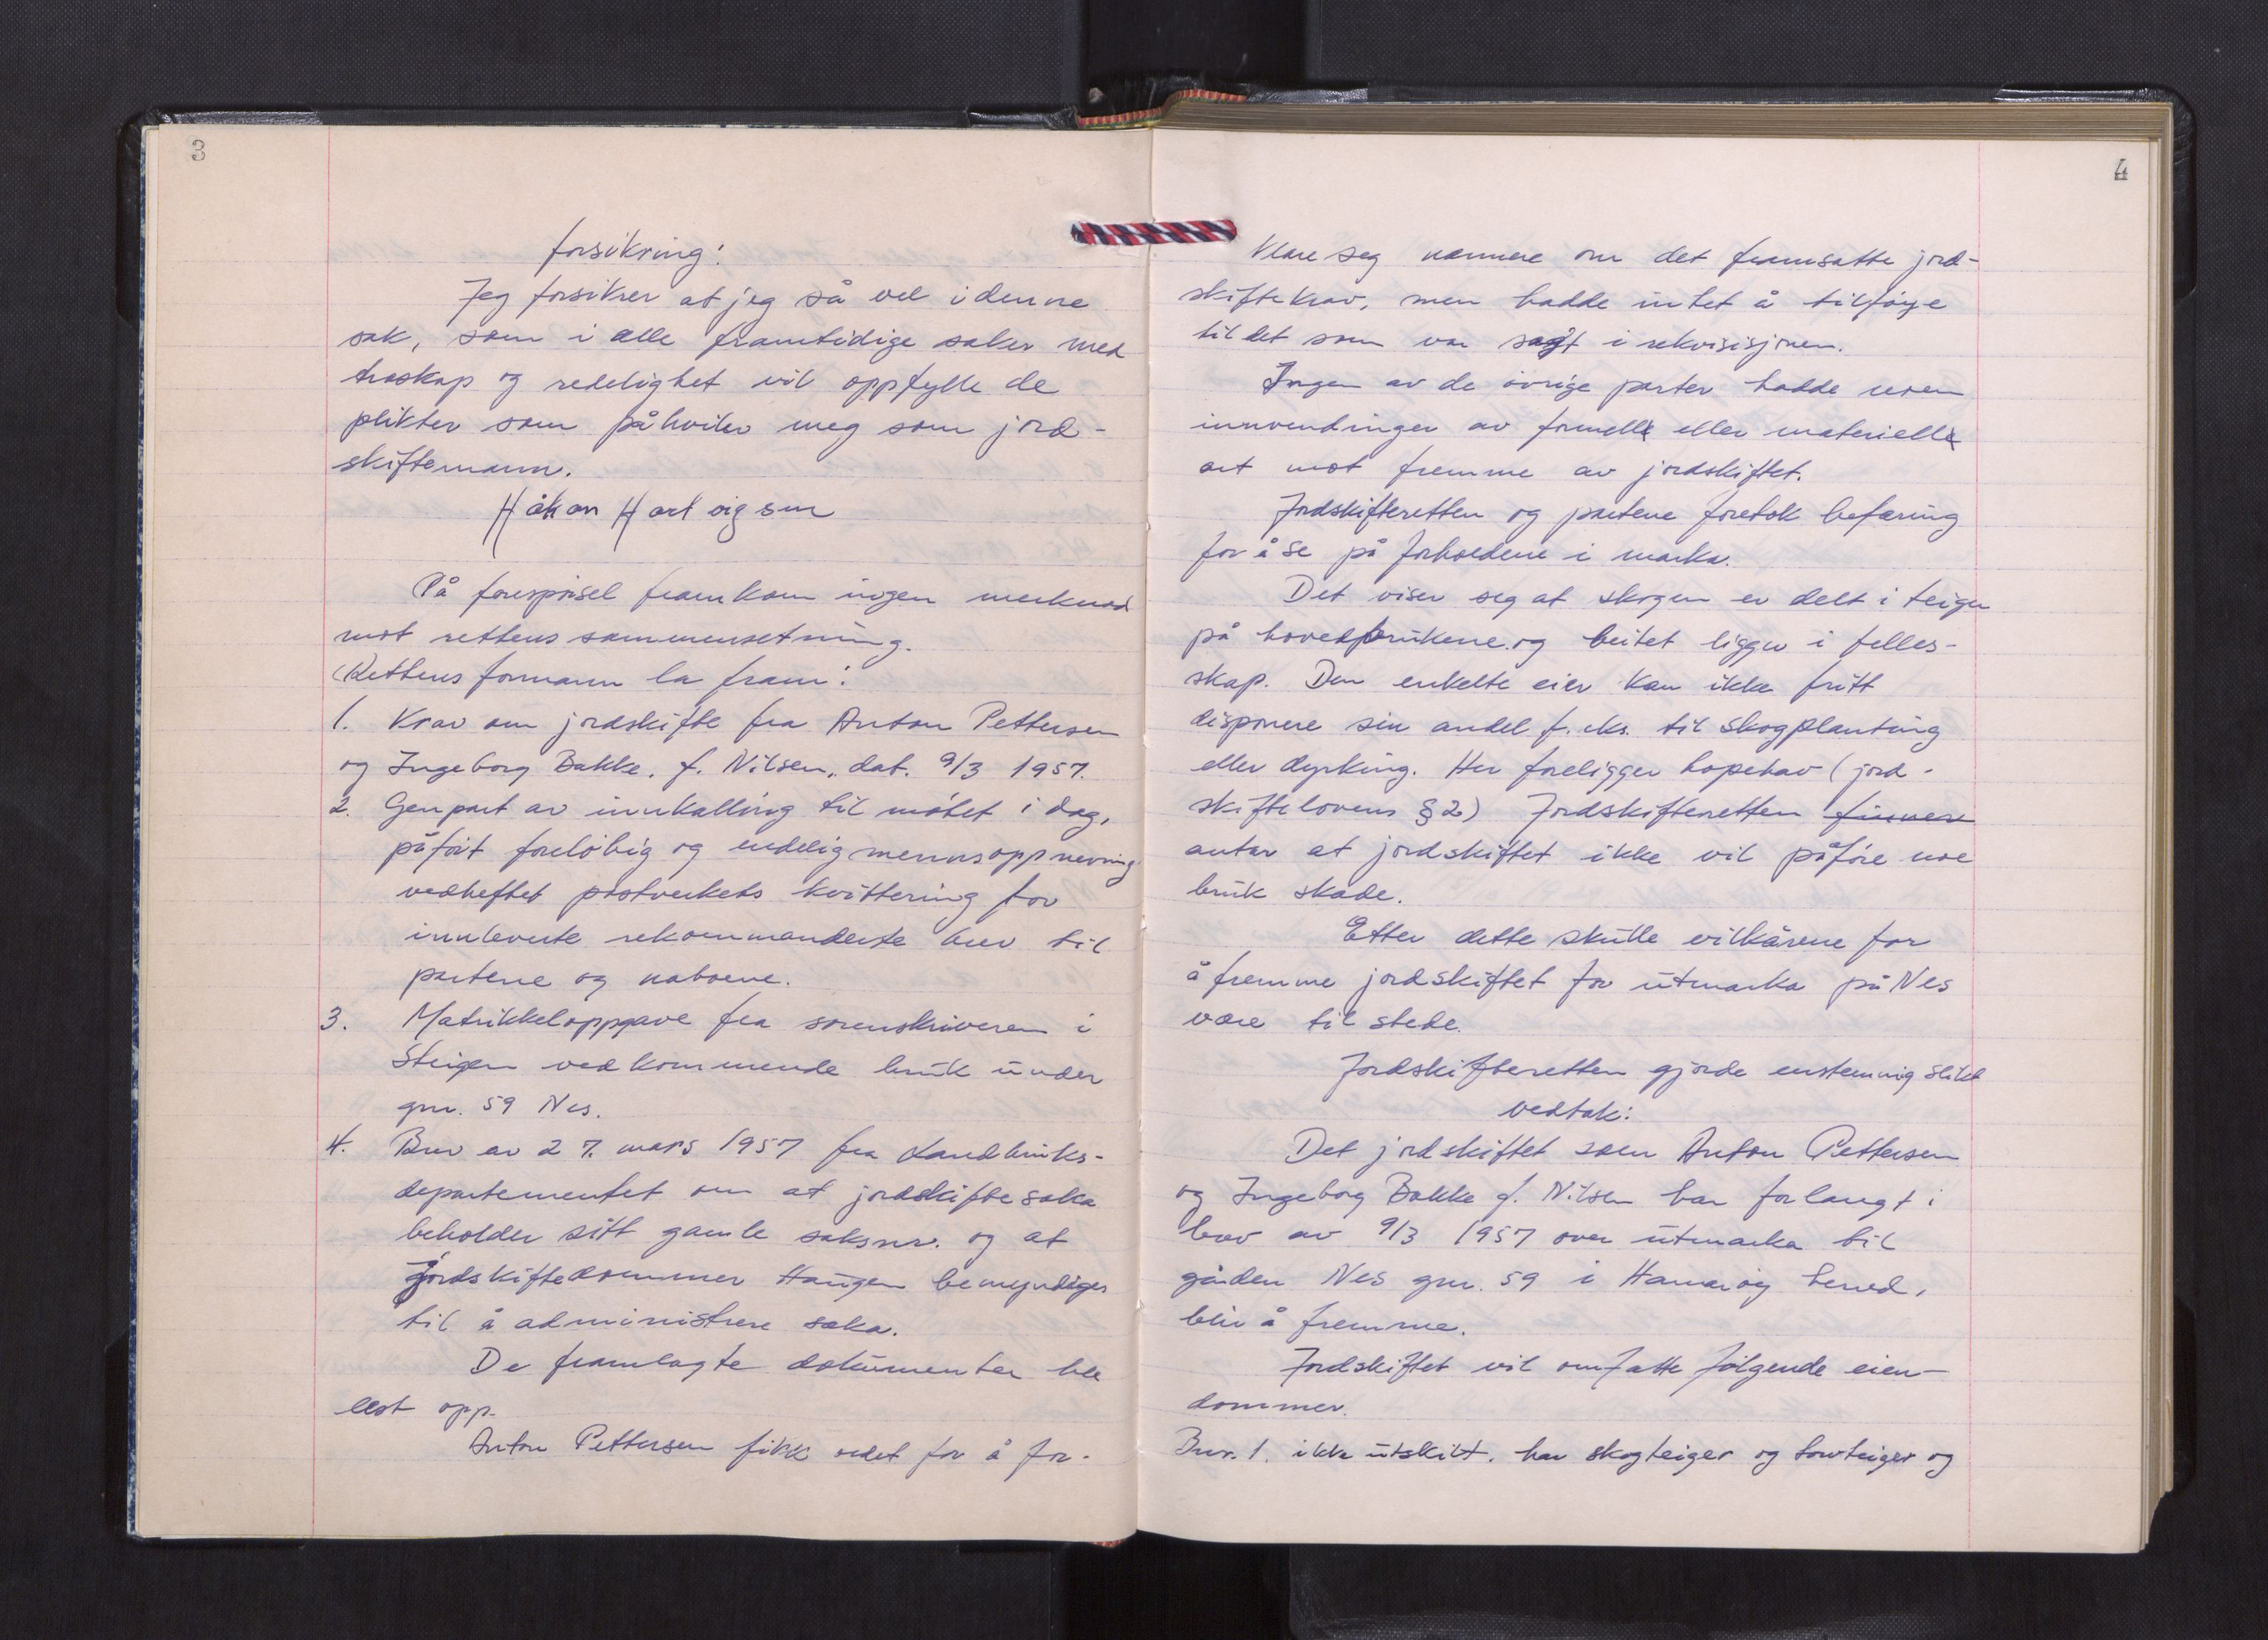 3
forsikring:
Jeg forsikrer at jeg så vel i denne
sak, som i alle framtidige saker med
troskap og redelighet vil oppfylle de
plikter som påhviler meg som jord-
skiftemann.
Håkon Hartvigsen
På forespørsel framkom ingen merknad
mot rettens sammensetning.
Rettens formann la fram:
1. Krav om jordskifte fra Anton Pettersen
og Ingeborg Bakke, f. Nilsen, dat. 9/3 1957.
2. Genpart av innkalling til møtet i dag,
påført foreløbig og endelig mennsoppnevning
vedheftet postverkets kvittering for
innleverte rekommanderte brev til
partene og naboene.
3. Matrikkeloppgave fra sorenskriveren i
Steigen vedkommende bruk under
gnr. 59 Nes.
4. Brev av 27. mars 1957 fra Landbruks-
departementet om at jordskiftesaka
beholder sitt gamle saksnr. og at
jordskiftedommer Haugen bemyndiges
til å administrere saka.
De framlagte dokumenter ble
lest opp.
Anton Pettersen fikk ordet for å for-
4
klare seg nærmere om det framsatte jord-
skiftekrav, men hadde intet å tilføye
til det som var sagt i rekvisisjonen.
Ingen av de øvrige parter hadde noen
innvendinger av formell eller materiell
art mot fremme av jordskiftet.
Jordskifteretten og partene foretok befaring
for å se på forholdene i marka.
Det viser seg at skogen er delt i teiger
på hovedbrukene og beitet ligger i felles-
skap. Den enkelte eier kan ikke fritt
disponere sin andel f. eks. til skogplanting
eller dyrking. Her foreligger hopehav (jord-
skiftelovens § 2) Jordskifteretten finner
antar at jordskiftet ikke vil påføre noe
bruk skade.
Etter dette skulle vilkårene for
å fremme jordskiftet for utmarka på Nes
være til stede.
Jordskifteretten gjorde enstemmig slikt
vedtak:
Det jordskiftet som Anton Pettersen
og Ingeborg Bakke f. Nilsen har forlangt i
brev av 9/3 1957 over utmarka til
gården Nes gnr. 59 i Hamarøy herred,
blir å fremme.
Jordskiftet vil omfatte følgende eien-
dommer.
Bnr. 1. ikke utskilt. har skogteiger og torvteiger og